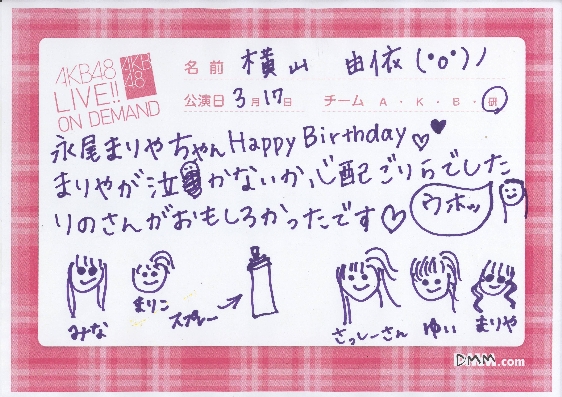 AKB48
LIVE!!
ON DEMAND
AKB
48
名前 横山 由依(°o°)ノ
公演日 3月17日 チーム A・K・B・研
永尾まりやちゃんHappy Birthday♡♥
まりやが泣かないか心配ごりらでした
りのさんがおもしろかったです♡ ウホッ
みな
まりこ
スプレー→
さっしーさん
ゆい
まりや
DMM.com